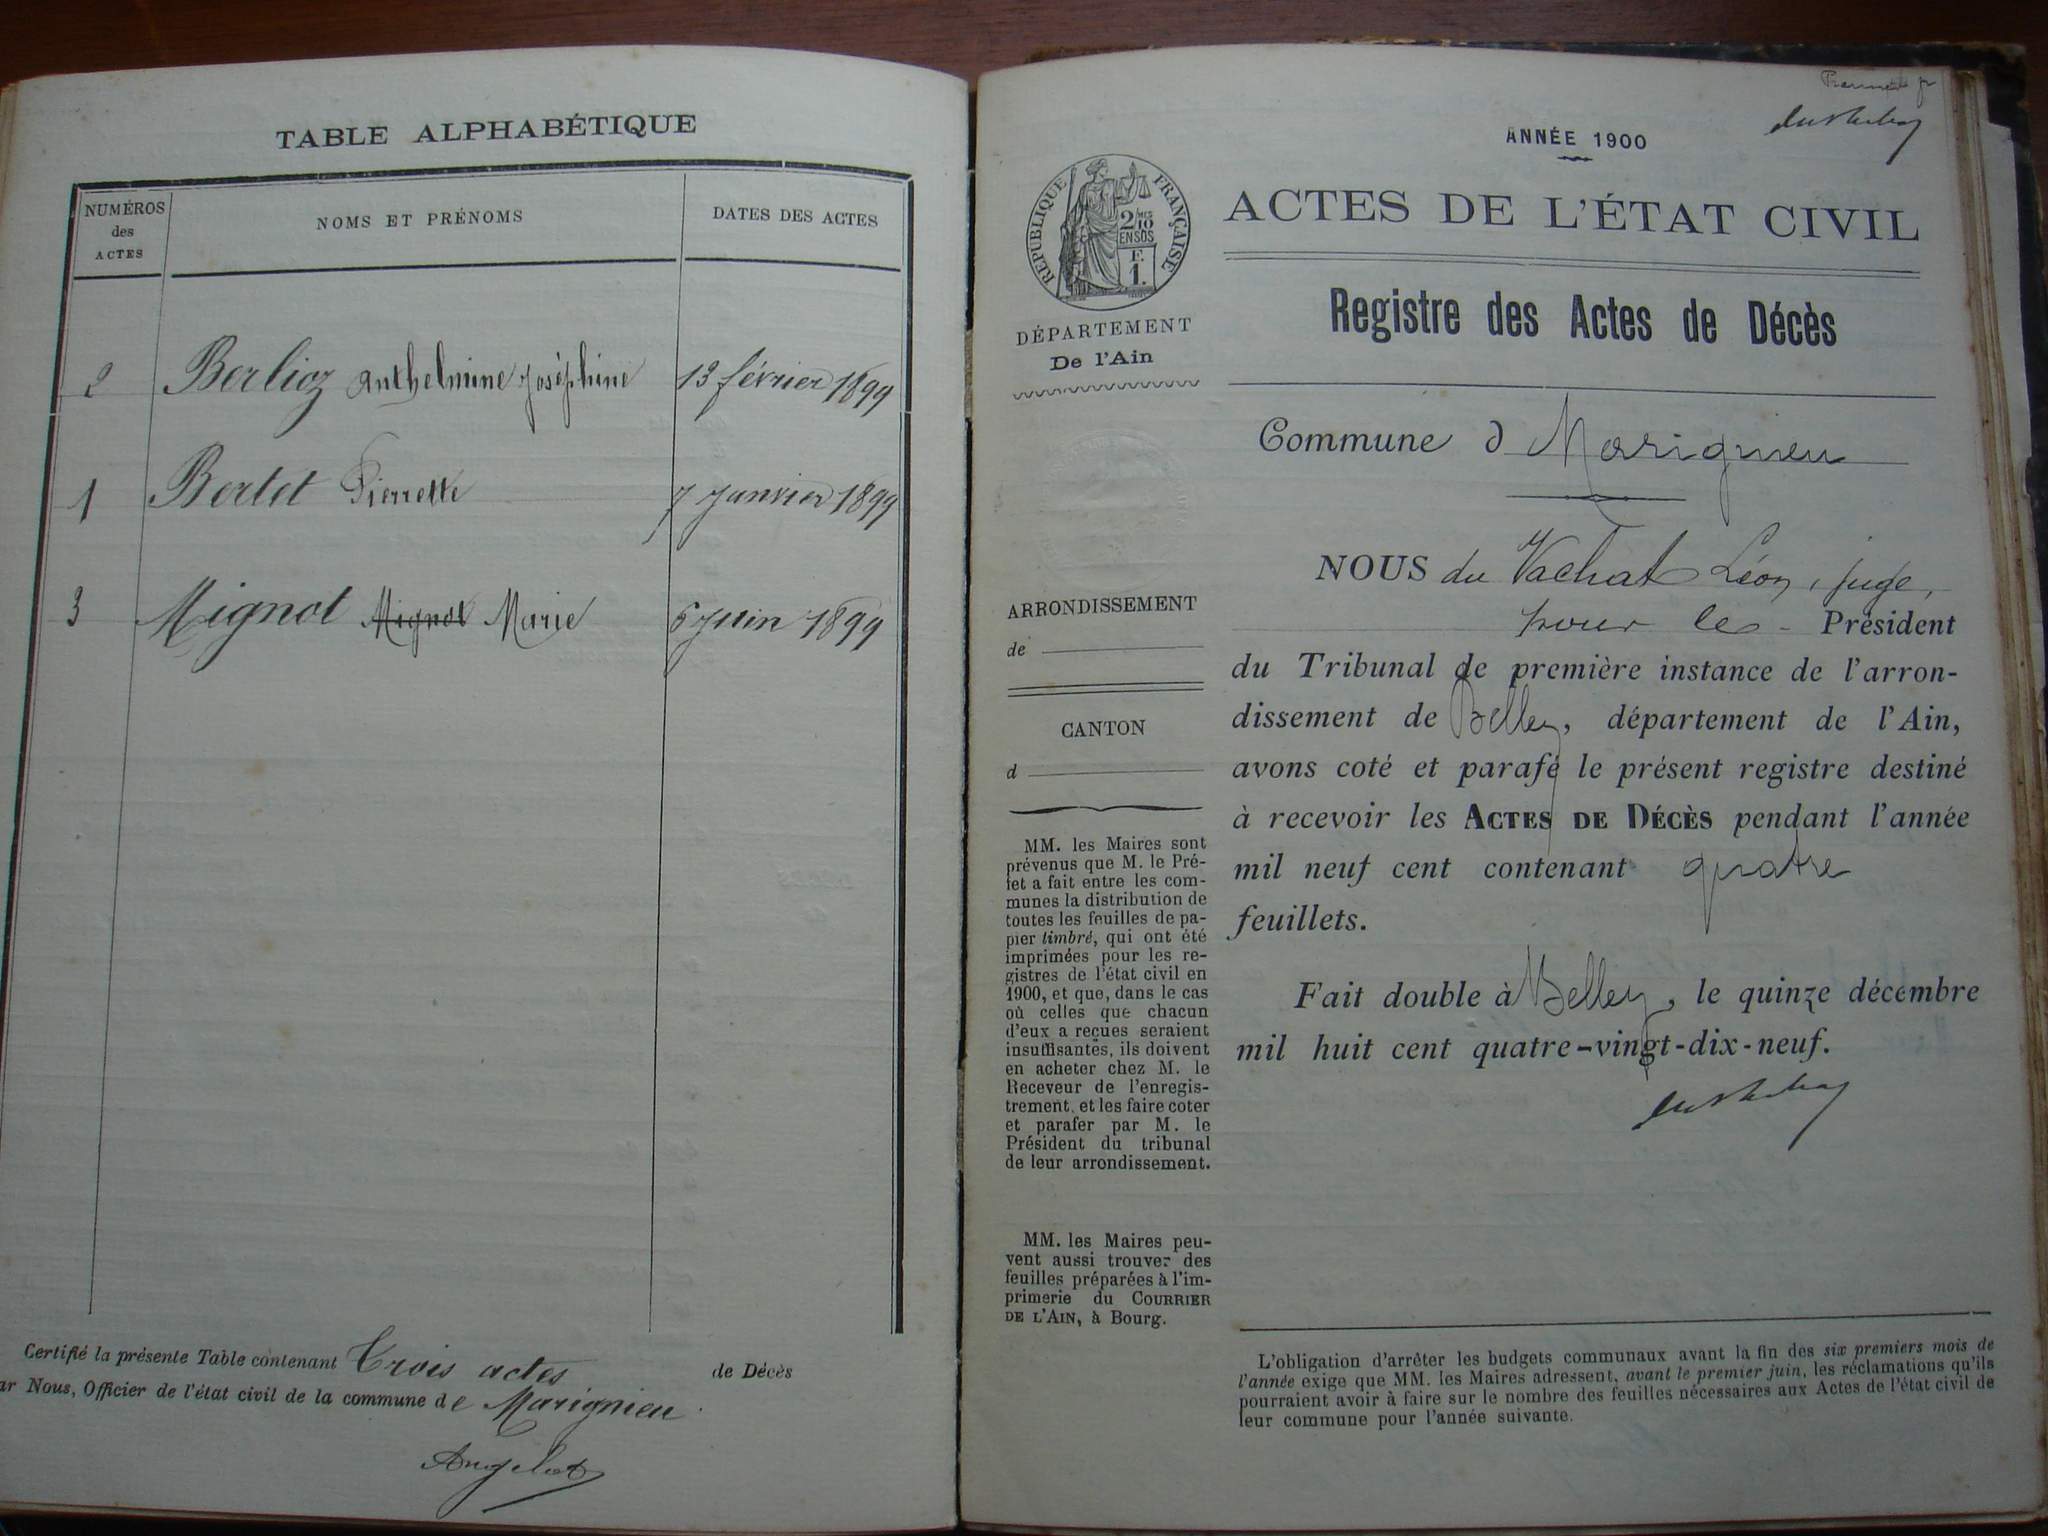 TABLE ALPHABÉTIQUE
NUMÉROS
des
ACTES
NOMS ET PRÉNOMS
DATES DES ACTES
2 Berlioz Anthelmine Joséphine 13 février 1899
1 Bertet Pierrette 7 Janvier 1899
3 Mignot Mignot Marie 6 Juin 1899
Certifié la présente Table contenant Trois actes de Décès
ar Nous, Officier de l'état civil de la commune de Marignieu
Angelot
ANNÉE 1900
RÉPUBLIQUE FRANÇAISE
2/10
EN SUS
F.
1.
ACTES DE L'ÉTAT CIVIL
DÉPARTEMENT
De l'Ain
Registre des Actes de Décès
Commune d Marignieu
ARRONDISSEMENT
de
CANTON
d
MM. les Maires sont
prévenus que M. le Pré-
fet a fait entre les com-
munes la distribution de
toutes les feuilles de pa-
pier timbré, qui ont été
imprimées pour les re-
gistres de l'état civil en
1900, et que, dans le cas
où celles que chacun
d'eux a reçues seraient
insuffisantes, ils doivent
en acheter chez M. le
Receveur de l'enregis-
trement, et les faire coter
et parafer par M. le
Président du tribunal
de leur arrondissement.
MM. les Maires peu-
vent aussi trouver des
feuilles préparées à l'im-
primerie du COURRIER
DE L'AIN, à Bourg.
NOUS du Vachat Léon, juge,
pour le Président
du Tribunal de première instance de l'arron-
dissement de Belley, département de l'Ain,
avons coté et parafé le présent registre destiné
à recevoir les ACTES DE DÉCÈS pendant l'année
mil neuf cent contenant quatre
feuillets.
Fait double à Belley, le quinze décembre
mil huit cent quatre-vingt-dix-neuf.
L'obligation d'arrêter les budgets communaux avant la fin des six premiers mois de
l'année exige que MM. les Maires adressent, avant le premier juin, les réclamations qu'ils
pourraient avoir à faire sur le nombre des feuilles nécessaires aux Actes de l'état civil de
leur commune pour l'année suivante.